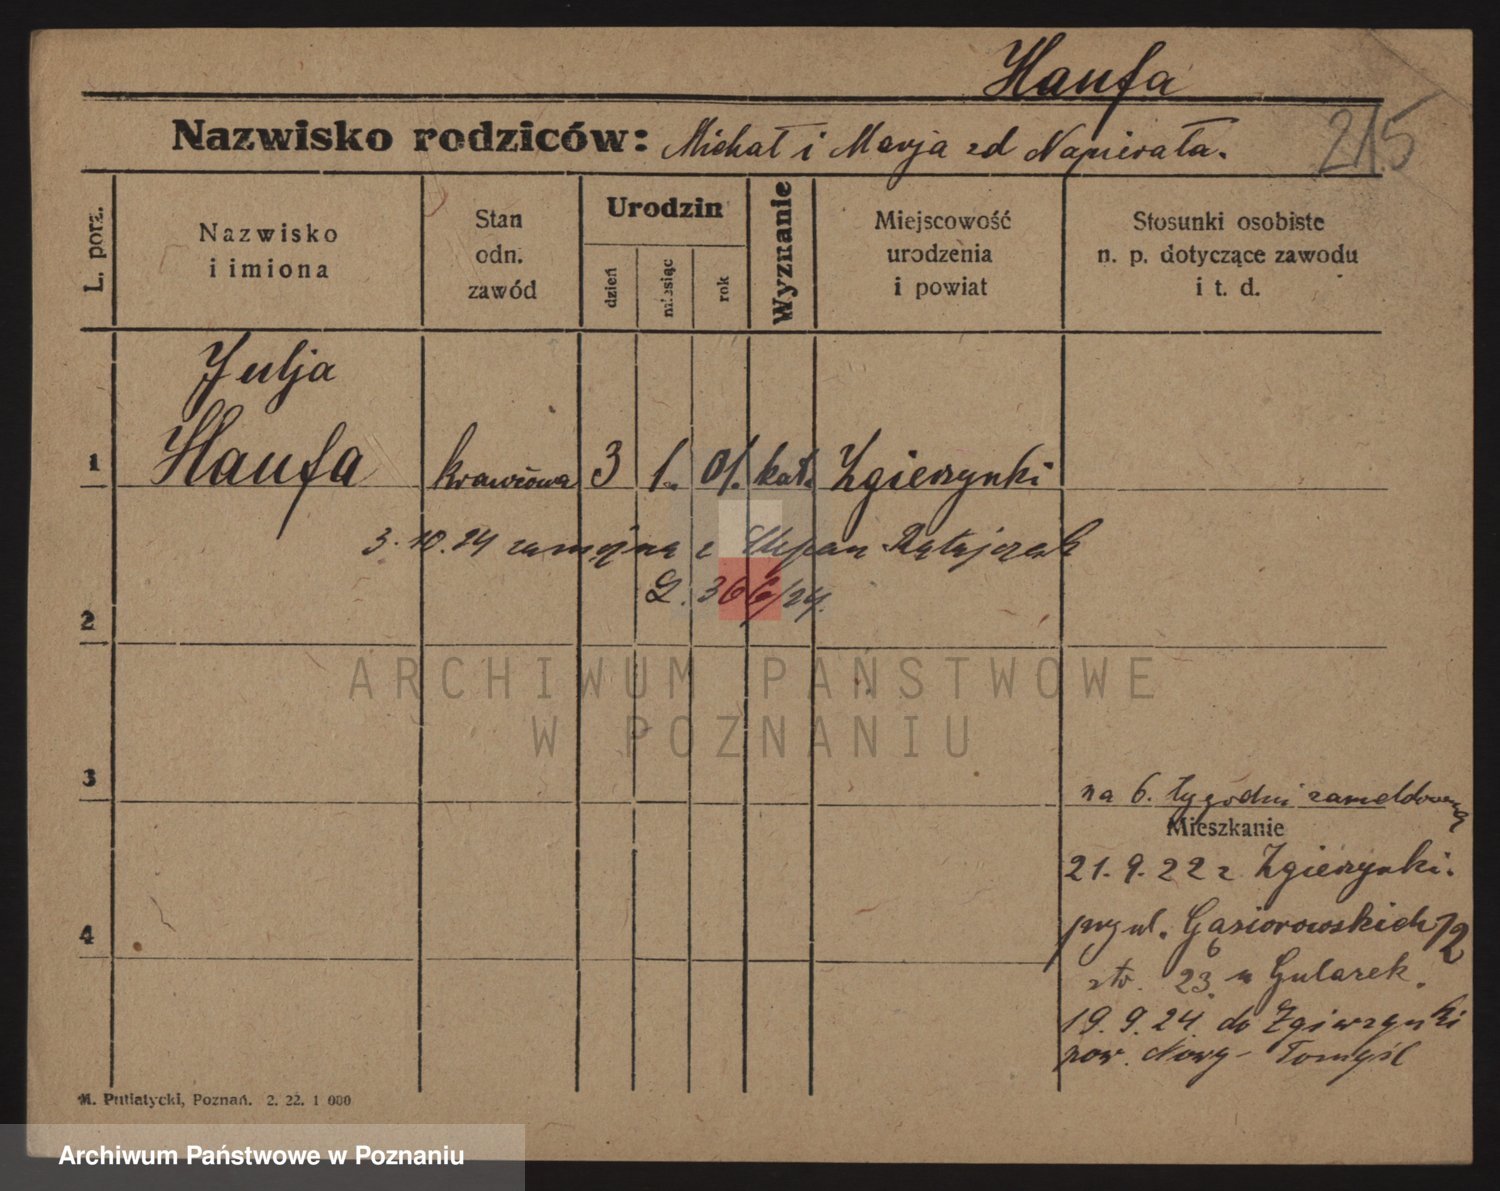 Haufa
215
Nazwisko rodziców: Michał i Marja zd Napierała.
L. porz.
Nazwisko
i imiona
Stan
odn.
zawód
Urodzin
dzień
miesiąc
rok
Wyznanie
Miejscowość
urodzenia
i powiat
Stosunki osobiste
n. p. dotyczące zawodu
i t. d.
Julja
1 Haufa krawcowa 3 1. 01. kat. Zgierzynki
3.10.24 zamężna z Stepan Ratajczak
L. 366/24.
2
ARCHIWUM PAŃSTWOWE
W POZNANIU
3
na 6. tygodni zameldowana
Mieszkanie
21.9.22 z Zgierzynki.
przy ul. Gąsiorowskich 12
6
23. u Gularek.
4
19.9.24. do Zgierzynki
pow. Nowy-Tomyśl
M. Putiatycki, Poznań. 2. 22. 1 000
Archiwum Państwowe w Poznaniu